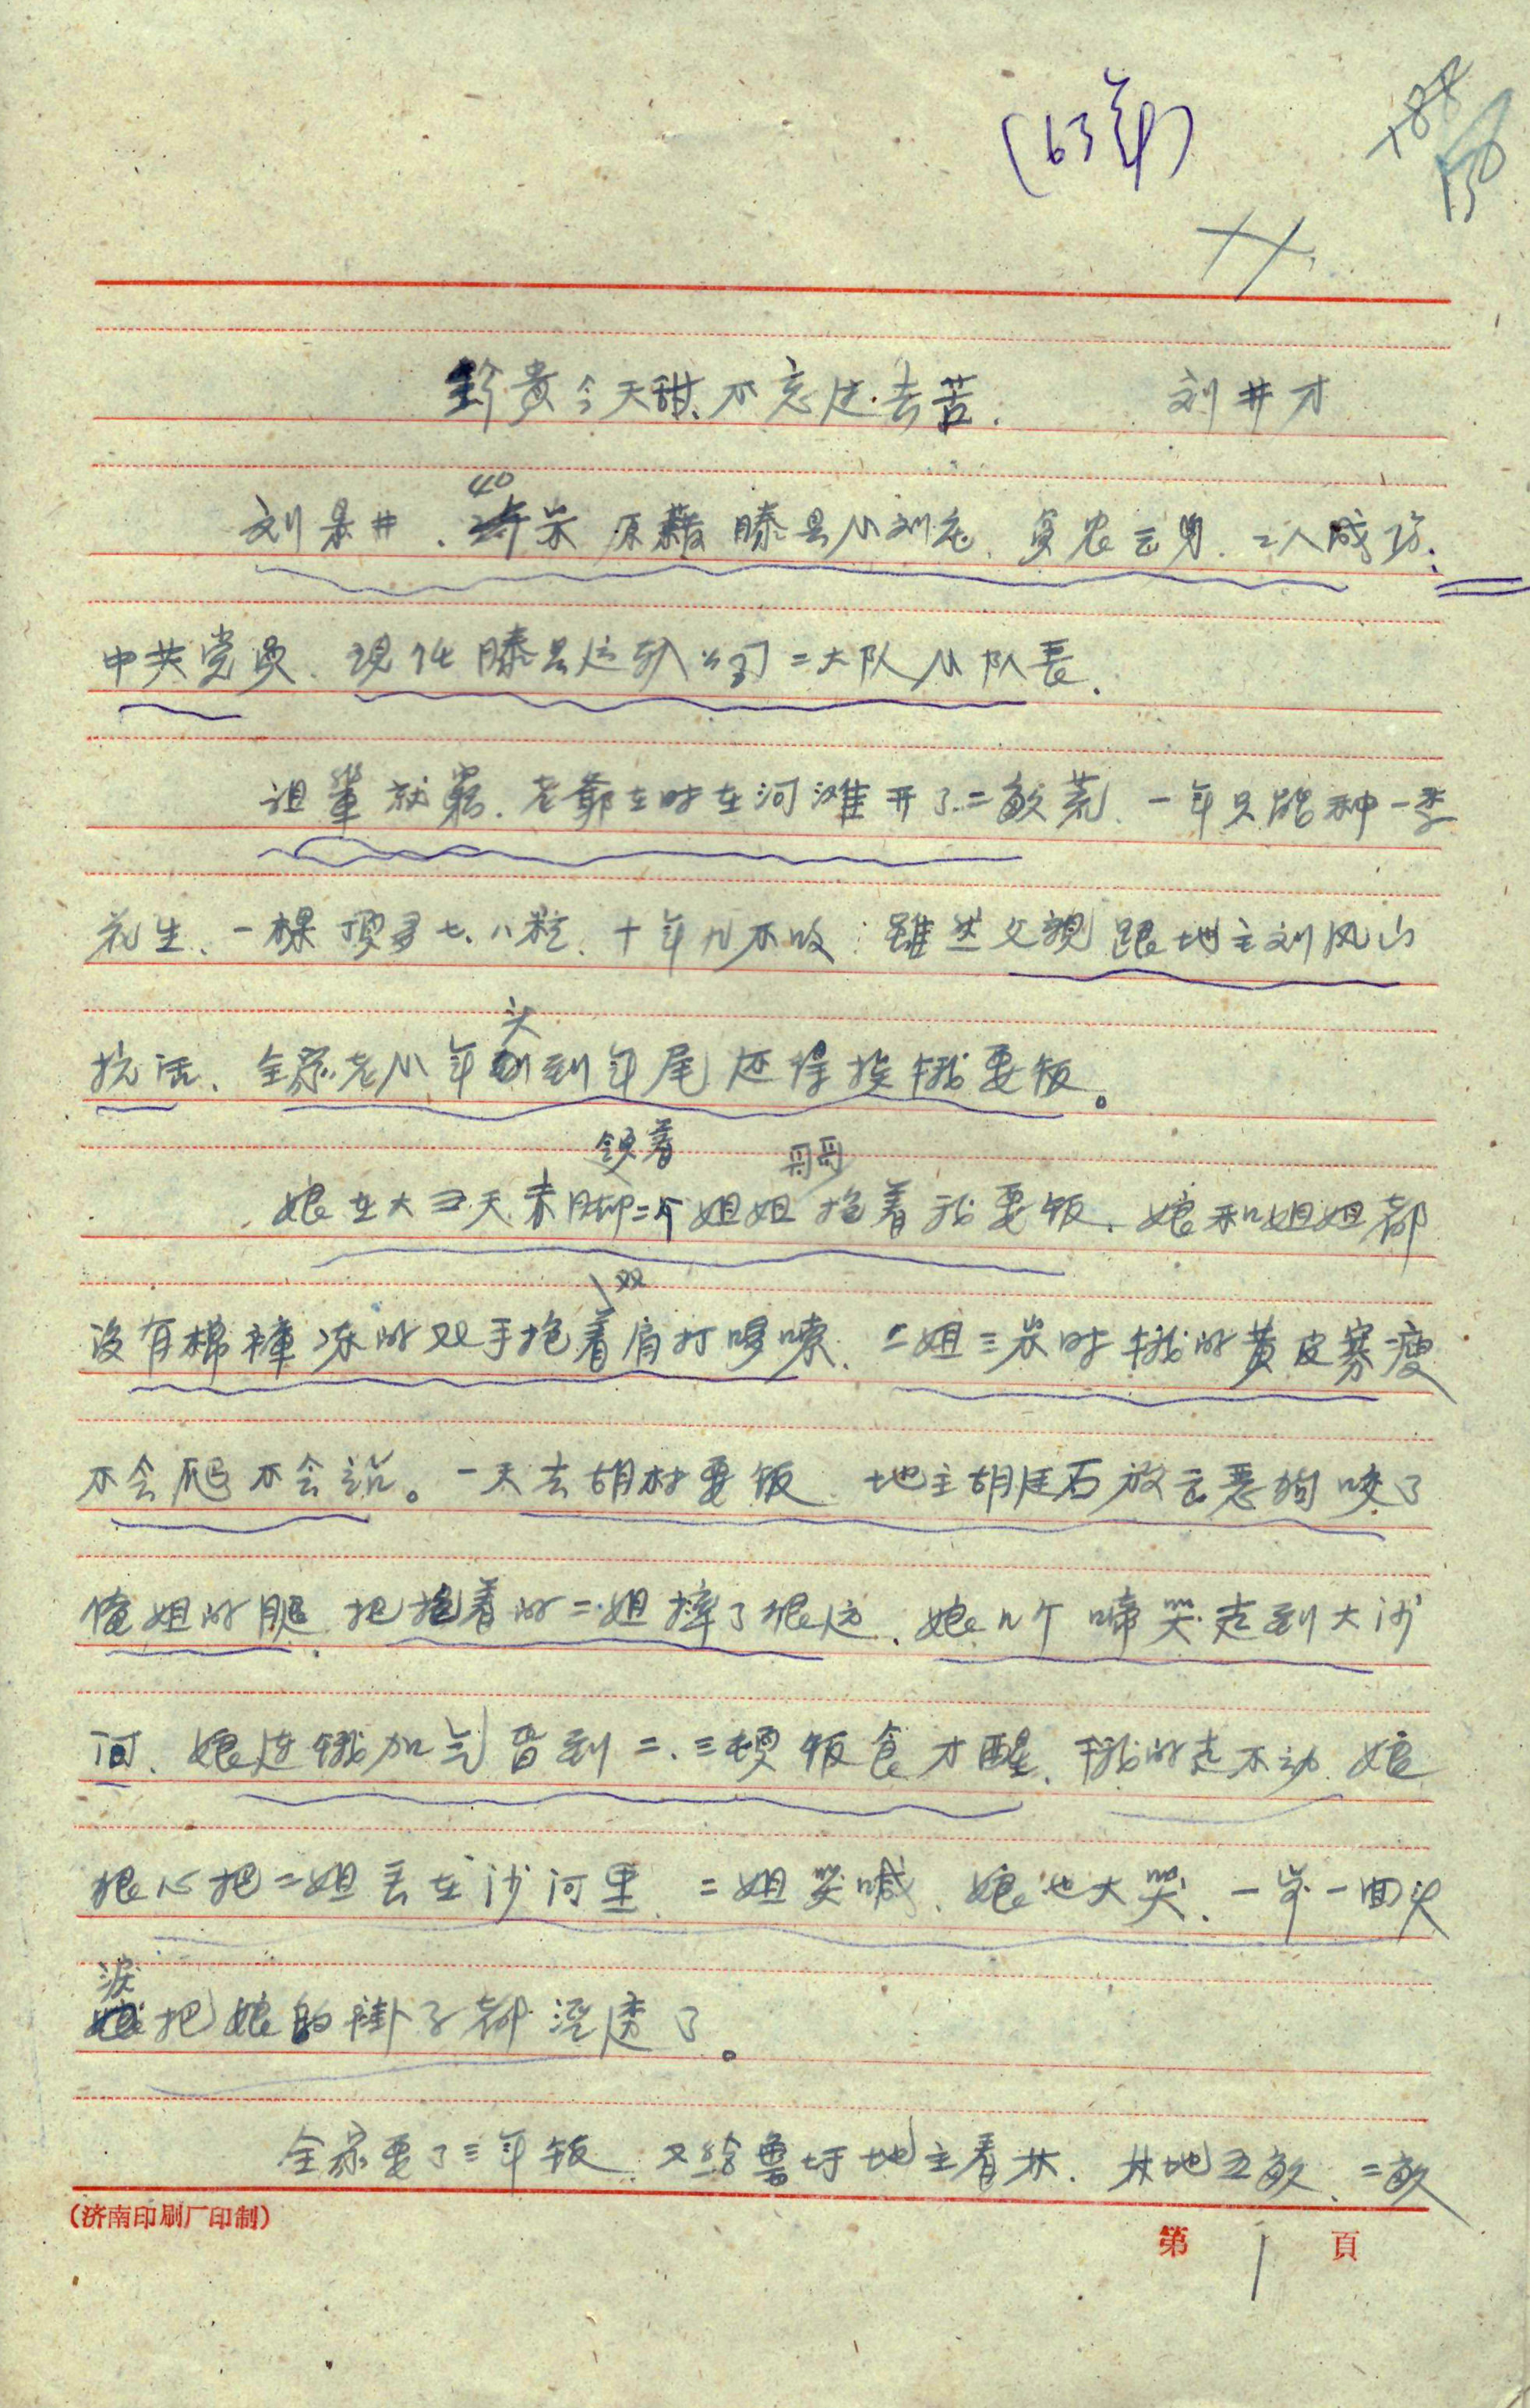 (63年)
珍贵今天甜、不忘过去苦. 刘井才
40
刘景井、岁 原籍滕县小刘庄、贫农出身、工人成份、
中共党员、现任滕县运输公司二大队小队长.
祖辈就穷、老爷在时在河滩开了二亩荒、一年只能种一季
花生、一棵顶多七、八粒、十年九不收；虽然父親跟地主刘风山
头
抗活、全家老小年到年尾还得挨饿要饭。
领着 哥哥
娘在大五天赤脚二个姐姐抱着我要饭、娘和姐姐都
双
没有棉裤冻的双手抱着肩打哆嗦、二姐三岁时饿的黄皮寡瘦
不会爬不会说。一天去胡村要饭 地主胡廷石放出恶狗咬了
俺姐的腿、把抱着的二姐摔了很远、娘几个啼哭走到大沙
河、娘连饿加气昏到二、三顿饭食才醒、饿的走不动 娘
狠心把二姐丢在沙河里、二姐哭喊、娘也大哭、一步一回头
淚
把娘的褂子都湿透了。
全家要了三年饭、又给鲁圩地主看林、林地五亩、二亩
(济南印刷厂印制)
第 1 頁